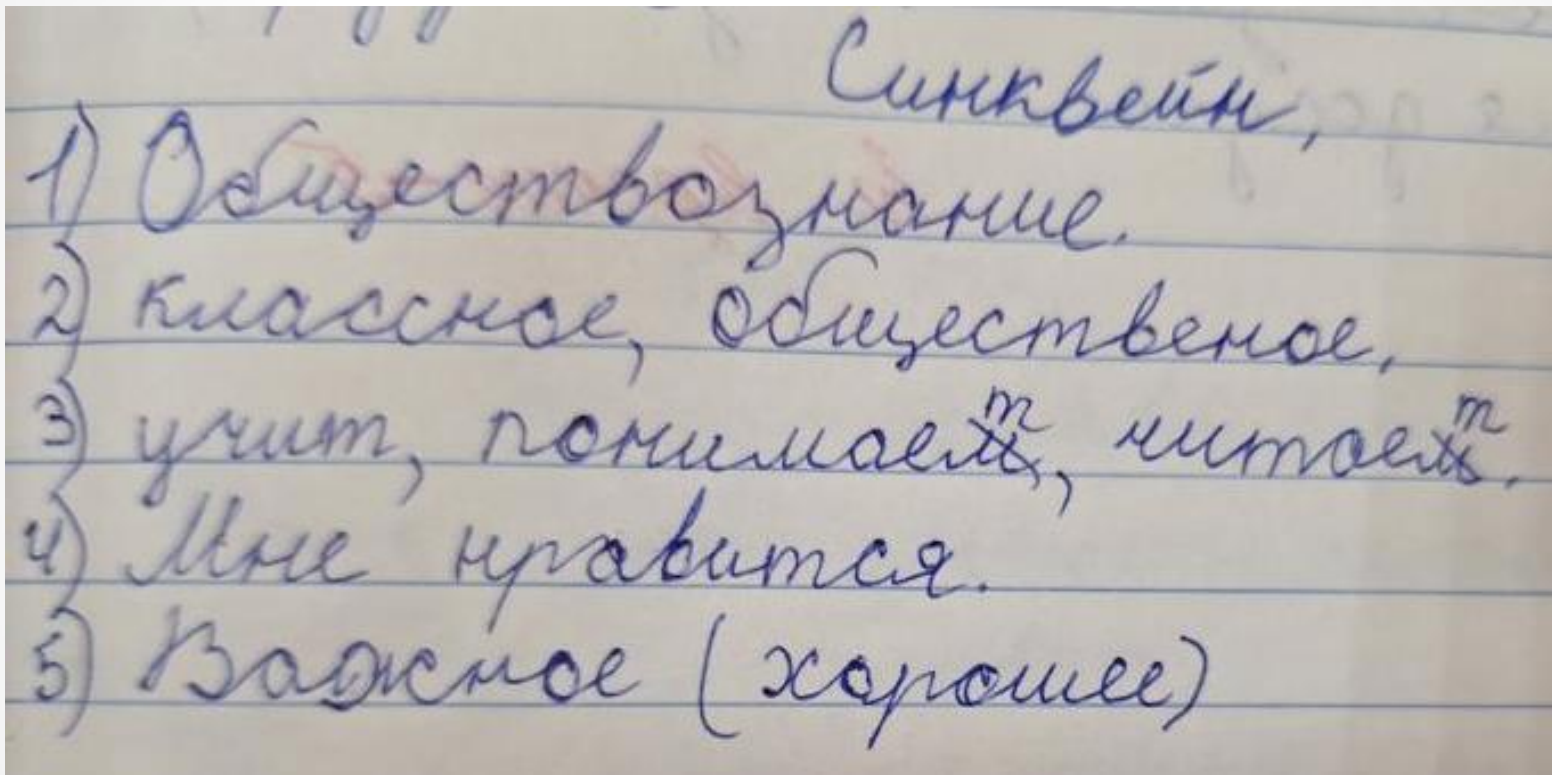 Синквейн,
1) Обществознание.
2) классное, общественое,
3) учит, понимает, читает.
4) Мне нравится.
5) Важное (хорошее)